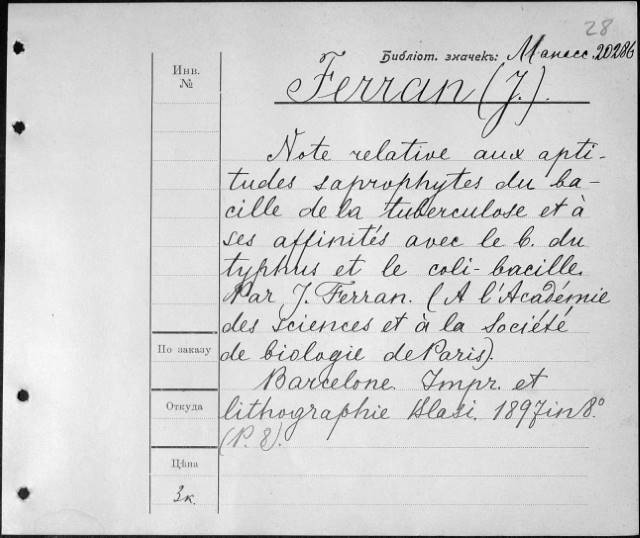 28
Библіот. значекъ: Манасс. 20286
Инв.
№
Ferran (J.).
Note relative aux apti-
tudes saprophytes du ba-
cille de la tuberculose et à
ses affinités avec le b. du
typhus et le coli-bacille.
Par J. Ferran. (A l'Académie
des sciences et à la Société
По заказу
de biologie de Paris).
Barcelone. Impr. et
Откуда
lithographie 1897 in 8.º
(P. 8).
Цѣна
3к.